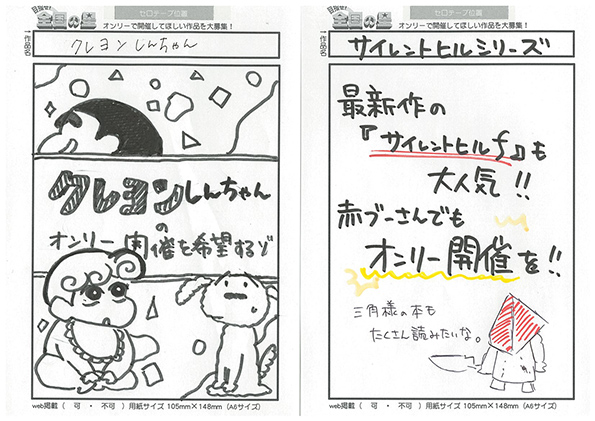 セロテープ位置
オンリーで開催してほしい作品を大募集！
クレヨンしんちゃん
クレヨンしんちゃん
の
オンリー開催を希望するゾ
web掲載（ 可 ・ 不可 ）用紙サイズ 105mm×148mm（A6サイズ）
セロテープ位置
オンリーで開催してほしい作品を大募集！
サイレントヒルシリーズ
最新作の
『サイレントヒルf』も
大人気!!
赤ブーさんでも
オンリー開催を!!
三角様の本も
たくさん読みたいな。
web掲載（ 可 ・ 不可 ）用紙サイズ 105mm×148mm（A6サイズ）